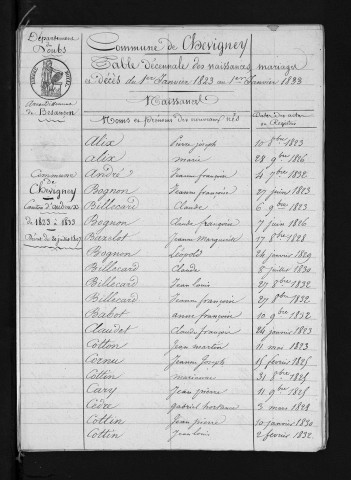 Département
du Doubs
Arrondissement
de Besançon
Commune
de
Chevigney
Canton d'audeux
de 1823 à 1833
Décret du 20 juillet 1807
Commune de Chevigney
Table décennale des naissances mariages
et décès du 1er Janvier 1823 au 1er Janvier 1833
Naissances
Noms et prénoms des nouveaux nés Dates des actes au Registre
Alix Pierre joseph 10 8bre 1823
alix marie 28 9bre 1826
André Jeanne françoise 4 7bre 1832
Bognon Jeanne françoise 27 juin 1823
Billecard Claude 6 9bre 1823
Bognon Claude françois 7 juin 1826
Jeanne Marguerite 17 8bre 1828
Bognon Léopold 24 janvier 1829
Billecard Claude 8 juillet 1830
Billecard Jean louis 27 8bre 1832
Billecard Jeanne françoise 27 8bre 1832
Babot anne françoise 10 9bre 1832
Claudet Claude françois 24 janvier 1823
Cotton Jean martin 11 mai 1823
Cornu Jeanne Josephe 15 février 1825
Cottin marianne 31 8bre 1825
Cary Jean pierre 11 9bre 1825
gabriel hortense 3 mars 1828
Cottin Jean pierre 10 janvier 1830
Cottin Jean louis 2 février 1832